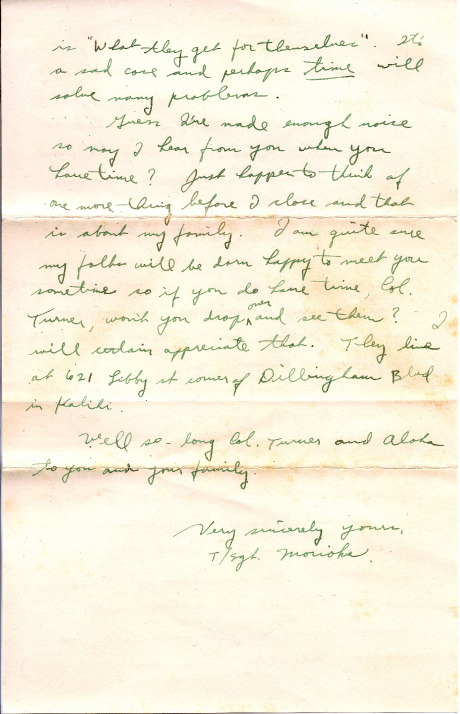 is "What they get for themselves". It's
a sad case and perhaps time will
solve many problems.
Guess I've made enough noise
so may I hear from you when you
have time? Just happen to think of
one more thing before I close and that
is about my family. I am quite sure
my folks will be darn happy to meet you
sometime so if you do have time, Col.
Turner, won't you drop over and see them? I
will certain appreciate that. They live
at 621 Libby st corner of Dillingham Blvd
in Kalihi.
Well so-long Col. Turner and Aloha
to you and your family.
Very sincerely yours,
T/Sgt. Morioka.